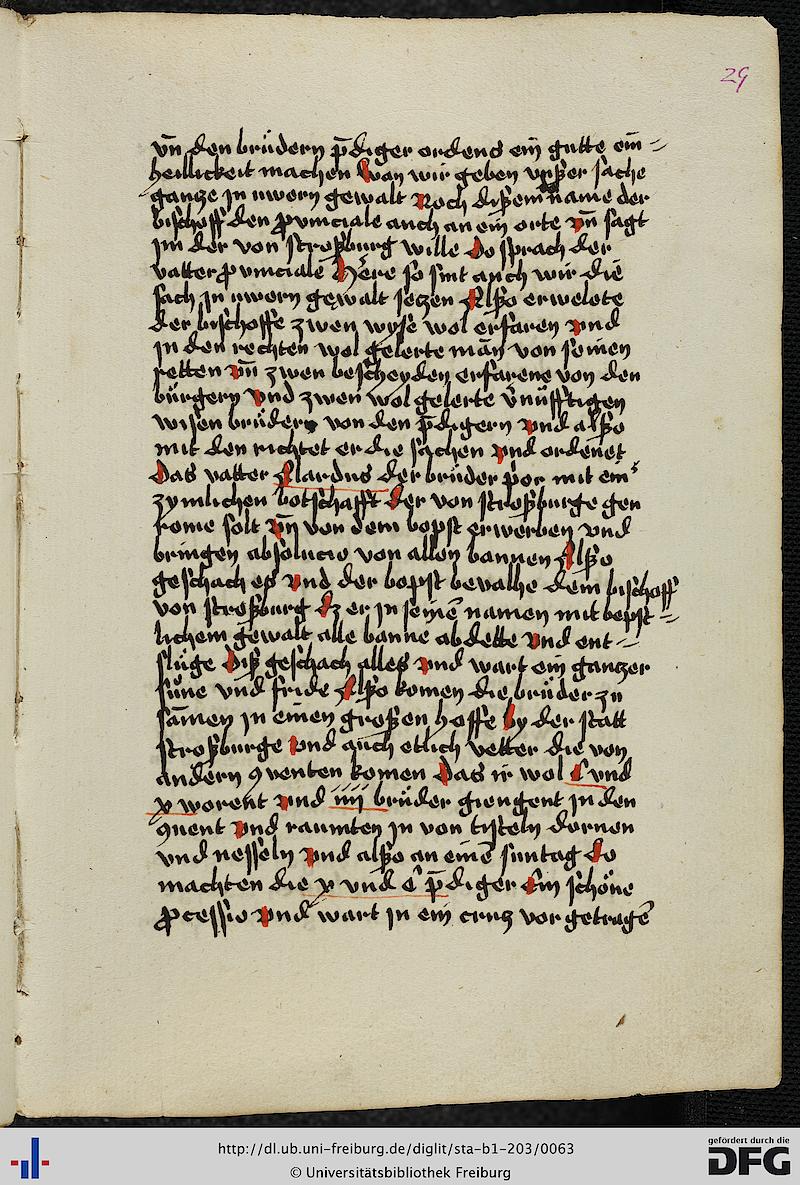 29
vn̄ den brüdern p̄diger ordens ein gutte ein=
hellickeit machen Wan wir geben vnßer sache
gancze jn uwern gewalt Noch dißem name der
bischoff den ꝓuinciale auch an ein orte vn̄ sagt
jm der von stroßburg wille Do sprach der
vatter ꝓuinciale Here so sint auch wir die
sach jn uwern gewalt seczen Alßo erwelete
der bischoffe zwen wyse wol erfaren vnd
jn den rechten wol gelerte man̄ von seinen
retten vn̄ zwen bescheyden erfarene von den
bürgern vnd zwen wol gelerte v̄nüfftigen
wisen brüdern von den p̄digern vnd alßo
mit den richtet er die sachen vnd ordenet
Das vatter Alardus der brüder p̓or mit ein̓
zymlichen botschafft Der von stroßburge gen
rome solt vn̄ von dem bopst erwerben vnd
bringen absolucio von allen bannen Alßo
geschach es vnd der bopst bevalhe dem bischoff
von stroßburg dz er jn seinē namen mit bepst=
lichem gewalt alle banne abdette vnd ent=
slüge Diß geschach alles vnd wart ein ganczer
süne vnd fride Alßo komen die brüder zu
samen jn einen großen hoffe by der statt
stroßburge vnd auch etlich vetter die von
andern ꝯuenten komen Das ir wol C vnd
x worent vnd iiij brüder giengent jn den
ꝯuent vnd raumten jn von tisteln dornen
vnd nesseln vnd alßo an einē suntag do
machten die x vnd C p̄diger Ein schöne
ꝓcessio vnd wart jn ein crucz vor getragē
http://dl.ub.uni-freiburg.de/diglit/sta-b1-203/0063
© Universitätsbibliothek Freiburg
gefördert durch die
DFG